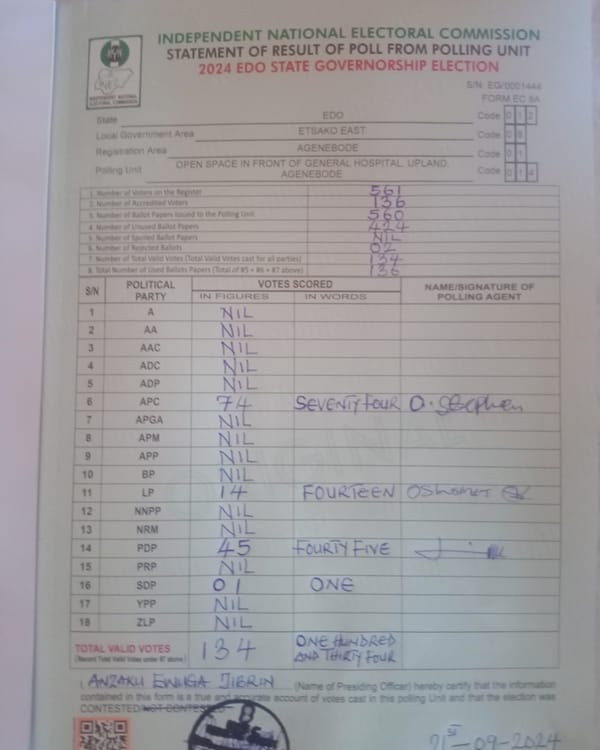 INDEPENDENT NATIONAL ELECTORAL COMMISSION
STATEMENT OF RESULT OF POLL FROM POLLING UNIT
2024 EDO STATE GOVERNORSHIP ELECTION
S/N: EG/0001444
FORM EC 8A
INEC
INDEPENDENT NATIONAL ELECTORAL COMMISSION
State EDO Code 0 1 2
Local Government Area ETSAKO EAST Code 0 8
Registration Area AGENEBODE Code 0 1
Polling Unit OPEN SPACE IN FRONT OF GENERAL HOSPITAL, UPLAND, AGENEBODE Code 0 1 4
1. Number of Voters on the Register 561
2. Number of Accredited Voters 136
3. Number of Ballot Papers Issued to the Polling Unit 560
4. Number of Unused Ballot Papers 424
5. Number of Spoiled Ballot Papers NIL
6. Number of Rejected Ballots 02
7. Number of Total Valid Votes (Total Valid Votes cast for all parties) 134
8. Total Number of Used Ballots Papers (Total of #5 + #6 + #7 above) 136
S/N POLITICAL PARTY VOTES SCORED NAME/SIGNATURE OF POLLING AGENT
IN FIGURES IN WORDS
1 A NIL
2 AA NIL
3 AAC NIL
4 ADC NIL
5 ADP NIL
6 APC 74 SEVENTY FOUR O. Stephen
7 APGA NIL
8 APM NIL
9 APP NIL
10 BP NIL
11 LP 14 FOURTEEN
12 NNPP NIL
13 NRM NIL
14 PDP 45 FOURTY FIVE
15 PRP NIL
16 SDP 01 ONE
17 YPP NIL
18 ZLP NIL
TOTAL VALID VOTES 134 ONE HUNDRED AND THIRTY FOUR
(Record Total Valid Votes under #7 above)
I, ANZAKU EWUGA JIBRIN (Name of Presiding Officer) hereby certify that the information
contained in this form is a true and accurate account of votes cast in this polling Unit and that the election was
CONTESTED/NOT CONTESTED
21st-09-2024